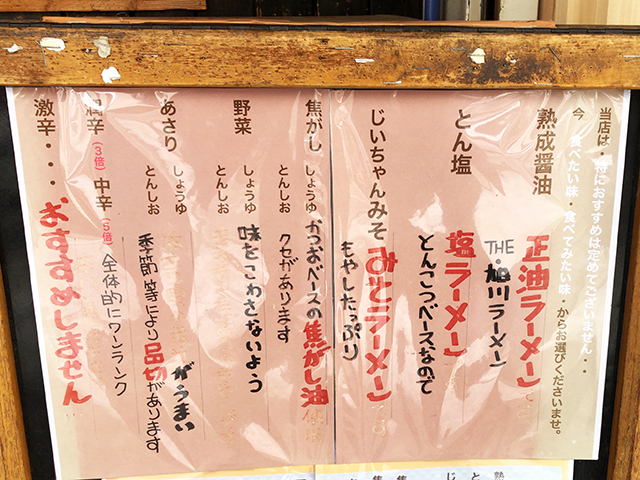 当店は・特におすすめは定めてございません・・・
今 食べたい味・食べてみたい味・からお選びくださいませ。
熟成醤油 正油ラーメンです
THE・旭川ラーメン
とん塩 塩ラーメンです
とんこつベースなので
じいちゃんみそ みそラーメンです
もやしたっぷり
焦がし しょうゆ かつおベースの焦がし油
とんしお クセがあります
野菜 しょうゆ 味をこわさないよう
とんしお
あさり しょうゆ がうまい
とんしお 季節等により品切があります
辛 (3倍) 中辛 (5倍) 全体的にワンランク
激辛・・・おすすめしません